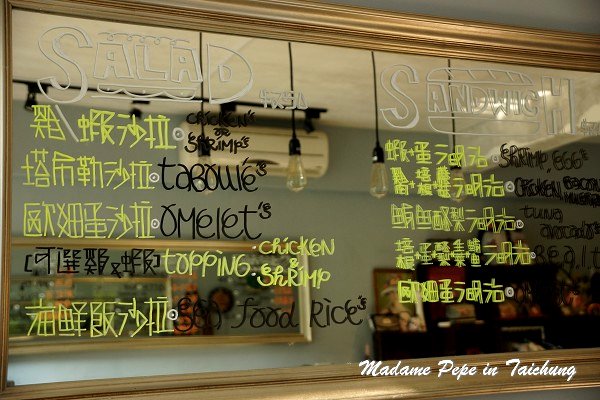 SALAD
雞、蝦沙拉。CHICKEN OR SHRIMP's
塔布勒沙拉。taboule's
歐姆蛋沙拉。OMELET's
[可選雞&蝦] topping. CHICKEN & SHRIMP
海鮮飯沙拉。Sea food Rice's
SANDWICH
蝦+蛋三明治。SHRIMP, EGG's
CHICKEN
鮪魚酪梨三明治 tuna avocado's
歐姆蛋三明治
Madame Pepe in Taichung